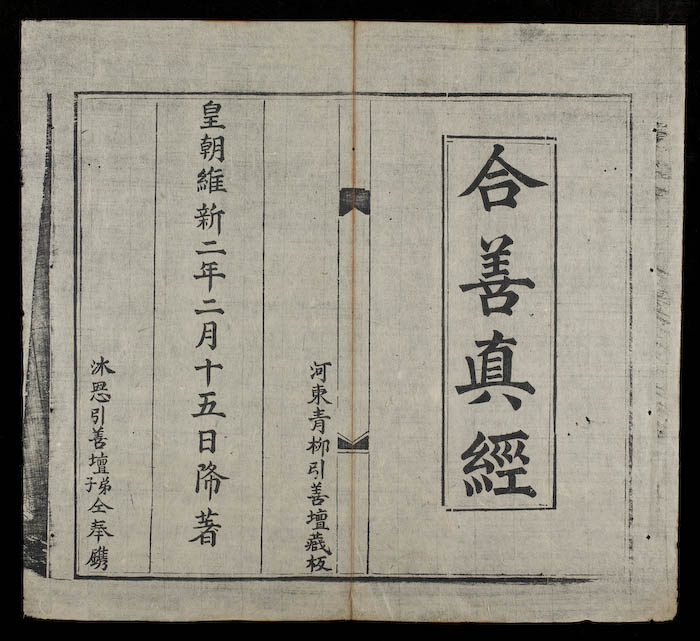 合善真經
河東青柳引善壇藏板
皇朝維新二年二月十五日降著
沐恩引善壇弟子仝奉鐫